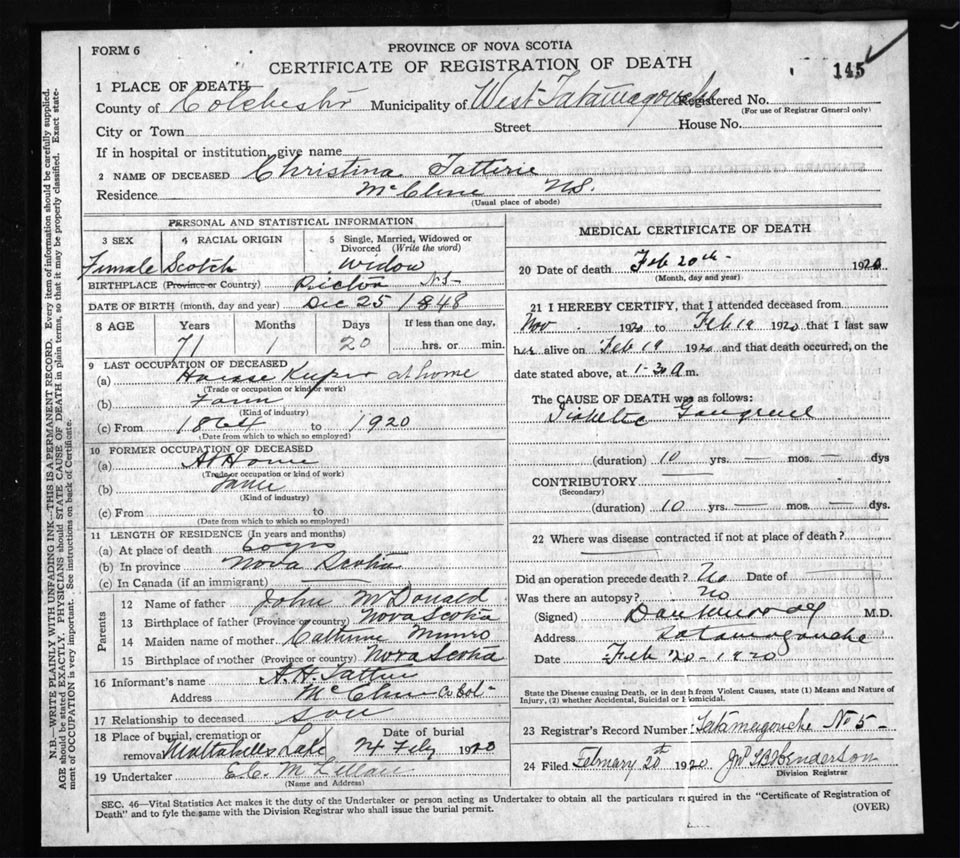 FORM 6
PROVINCE OF NOVA SCOTIA
CERTIFICATE OF REGISTRATION OF DEATH
145
1 PLACE OF DEATH
County of Colchester Municipality of West Tatamagouche Registered No.
(For use of Registrar General only)
City or Town Street House No.
If in hospital or institution, give name
2 NAME OF DECEASED Christina Tatterie
Residence McClure NS.
(Usual place of abode)
PERSONAL AND STATISTICAL INFORMATION
3 SEX 4 RACIAL ORIGIN 5 Single, Married, Widowed or Divorced (Write the word)
Female Scotch Widow
BIRTHPLACE (Province or Country) Pictou N.S-
DATE OF BIRTH (month, day and year) Dec 25 1848
8 AGE Years Months Days If less than one day,
71 1 20 hrs. or min.
9 LAST OCCUPATION OF DECEASED
(a) House Keeper at home
(Trade or occupation or kind or work)
(b) Farm
(Kind of industry)
(c) From 1864 to 1920
(Date from which to which so employed)
10 FORMER OCCUPATION OF DECEASED
(a) At Home
(Trade or occupation or kind of work)
(b) Farm
(Kind of industry)
(c) From to
(Date from which to which so employed)
11 LENGTH OF RESIDENCE (In years and months)
(a) At place of death 60 yrs
(b) In province Nova Scotia
(c) In Canada (if an immigrant)
Parents
12 Name of father John McDonald
13 Birthplace of father (Province or country) Nova Scotia
14 Maiden name of mother Catherine Munro
15 Birthplace of mother (Province or country) Nova Scotia
16 Informant's name A.H. Tattrie
Address McClure Co Col-
17 Relationship to deceased Son
18 Place of burial, cremation or removal Lake Date of burial 24 Feby 1920
19 Undertaker E.C.
(Name and Address)
MEDICAL CERTIFICATE OF DEATH
20 Date of death Feb 20th- 1920
(Month, day and year)
21 I HEREBY CERTIFY, that I attended deceased from
Nov. 1920 to Feb 19 1920 that I last saw
her alive on Feb 19 1920 and that death occurred, on the
date stated above, at 1-30 a m.
The CAUSE OF DEATH was as follows:
Diabetic Gangrene
(duration) 10 yrs. — mos. — dys
CONTRIBUTORY
(Secondary)
(duration) 10 yrs. — mos. — dys
22 Where was disease contracted if not at place of death?
Did an operation precede death? No Date of
Was there an autopsy? No
(Signed) Dan Murray M.D.
Address Tatamagouche
Date Feb 20-1920
State the Disease causing Death, or in death from Violent Causes, state (1) Means and Nature of Injury, (2) whether Accidental, Suicidal or Homicidal.
23 Registrar's Record Number Tatamagouche No 5-
24 Filed February 20th 1920 Henderson
Division Registrar
SEC. 46—Vital Statistics Act makes it the duty of the Undertaker or person acting as Undertaker to obtain all the particulars required in the "Certificate of Registration of
Death" and to fyle the same with the Division Registrar who shall issue the burial permit.
(OVER)
N.B.—WRITE PLAINLY WITH UNFADING INK—THIS IS A PERMANENT RECORD. Every item of information should be carefully supplied.
AGE should be stated EXACTLY. PHYSICIANS should STATE CAUSE OF DEATH in plain terms, so that it may be properly classified. Exact statement of OCCUPATION is very important. See instructions on back of Certificate.